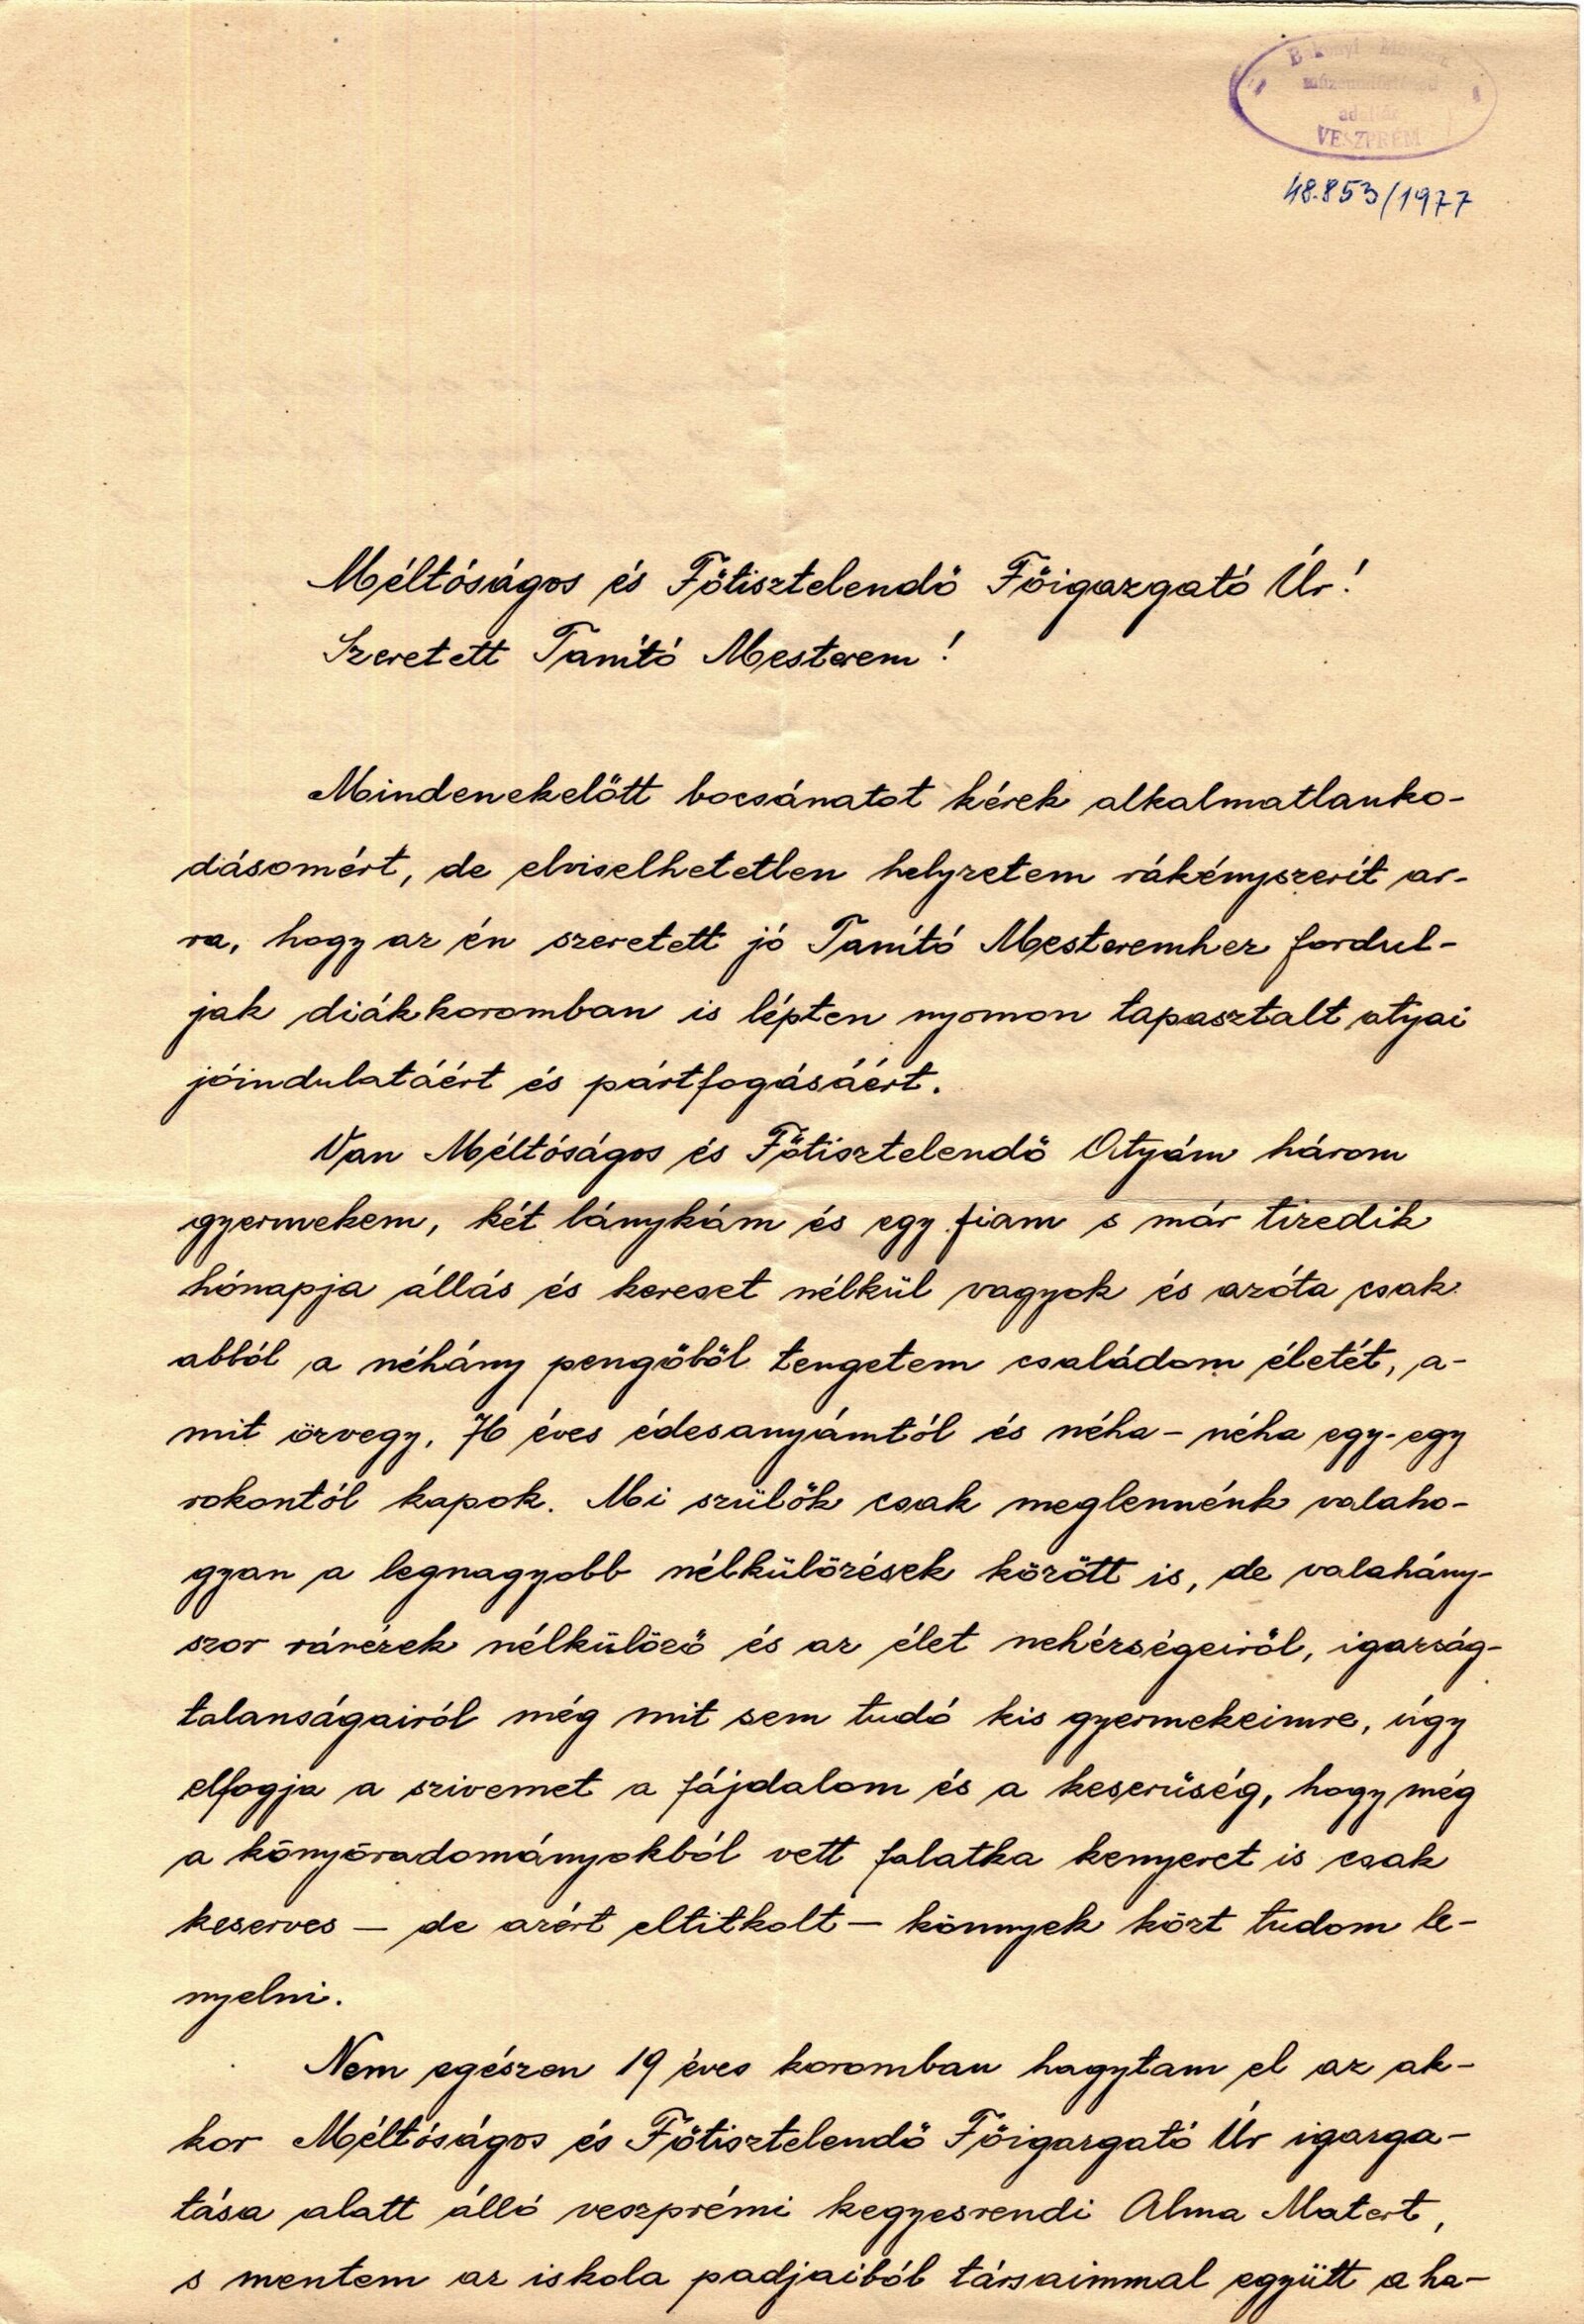 Bakonyi Múzeum
adattár
VESZPRÉM
48.853/1977
Méltóságos és Főtisztelendő Főigazgató Úr!
Szeretett Tanító Mesterem!
Mindenekelőtt bocsánatot kérek alkalmatlanko-
dásomért, de elviselhetetlen helyzetem rákényszerít ar-
ra, hogy az én szeretett jó Tanító Mesteremhez fordul-
jak diákkoromban is lépten nyomon tapasztalt atyai
jóindulatáért és pártfogásáért.
Van Méltóságos és Főtisztelendő Atyám három
gyermekem, két lánykám és egy fiam s már tizedik
hónapja állás és kereset nélkül vagyok és azóta csak
abból a néhány pengőből tengetem családom életét, a-
mit özvegy, 76 éves édesanyámtól és néha-néha egy-egy
rokontól kapok. Mi szülők csak meglennénk valaho-
gyan a legnagyobb nélkülözések között is, de valahány-
szor ránézek nélkülöző és az élet nehézségeiről, igazság-
talanságairól még mit sem tudó kis gyermekeimre, úgy
elfogja a szivemet a fájdalom és a keserűség, hogy még
a könyöradományokból vett falatka kenyeret is csak
keserves – de azért eltitkolt – könnyek közt tudom le-
nyelni.
Nem egészen 19 éves koromban hagytam el az ak-
kor Méltóságos és Főtisztelendő Főigazgató Úr igazga-
tása alatt álló veszprémi kegyesrendi Alma Matert,
s mentem az iskola padjaiból társaimmal együtt a ha-